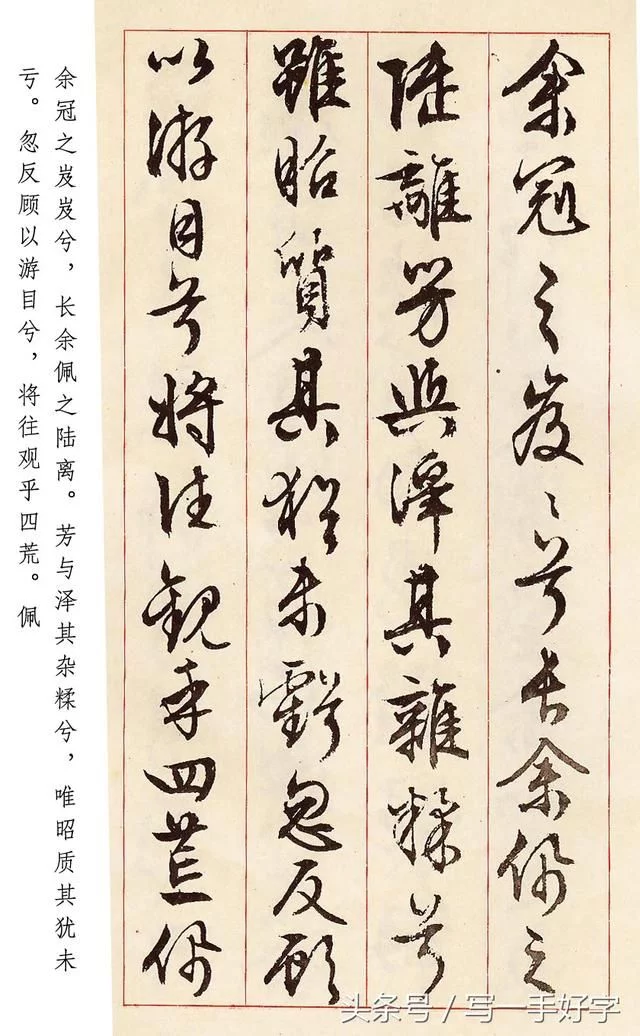 余冠之岌〻兮長余佩之
陸離芳與澤其雜糅兮
雖昭質其猶未虧忽反顧
以游目兮將往觀乎四荒佩
余冠之岌岌兮，长余佩之陆离。芳与泽其杂糅兮，唯昭质其犹未
亏。忽反顾以游目兮，将往观乎四荒。佩
头条号 / 写一手好字